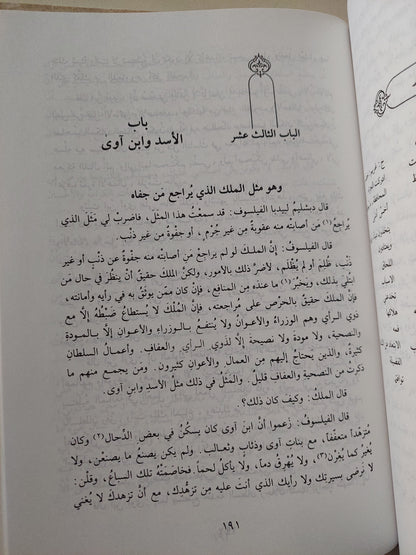 الباب الثالث عشر
باب
الأسد وابن آوى
وهو مثل الملك الذي يُراجع مَن جفاه
قال دبشليم لبيدبا الفيلسوف: قد سمعْتُ هذا المثل، فاضرب لي مَثَلَ الذي
يُراجعُ(١) مَن أصابَتْه منه عقوبةٌ مِن غير جُرْمٍ، أو جفْوةٌ من غير ذنْب.
قال الفيلسوفُ: إنَّ الملكَ لو لم يراجع مَن أصابته منه جفوةٌ عن ذنْبٍ أو غير
ذنْب، ظَلَم أو لم يُظْلَم، لأضرَّ ذلك بالأمور، ولكنَّ الملكَ حقيقٌ أن ينظُرَ في حال مَن
ابتُلِيَ بذلك، ويَخْبُرَ(١) ما عنده مِن المنافع، فإن كانَ ممّن يوثَقُ به في رأيه وأمانته،
فإنَّ الملكَ حقيقٌ بالحِرْص على مُراجعته، فإنَّ المُلْكَ لا يُستطاعُ ضَبْطُه إلّا مع
ذوي الرأي وهم الوزراءُ والأعوانُ ولا يُنتفعُ بالوزراءِ والأعوان إلّا بالمودة
والنصيحة، ولا مودةَ ولا نصيحةَ إلّا لذوي الرأي والعفافِ. وأعمالُ السلطان
كثيرةٌ، والذين يَحتاجُ إليهم مِن العمال والأعوانِ كثيرون. ومَن يجمع منهم ما
ذكرت مِن النصيحةِ والعفاف قليلٌ. والمَثَلُ في ذلك مثلُ الأسد وابن آوى.
قال الملكُ: وكيف كان ذلك؟.
قال الفيلسوف: زعموا أنَّ ابنَ آوى كان يسكُنُ في بعض الدِّحال(٢) وكان
مُتزهِّداً متعفِّفاً، مع بناتِ آوى وذئابٍ وثعالب. ولم يكن يصنعُ ما يصنعْن، ولا
يُغير كما يُغِرْنَ(٣)، ولا يُهْرِقُ دماً، ولا يأكلُ لحماً. فخاصَمَتْه تلك السباعُ، وقلْن:
لا نرضى بسيرتك ولا رأيك الذي أنتَ عليه مِن تزهُّدِك، مع أنَّ تزهدَك لا يُغني
١٩١